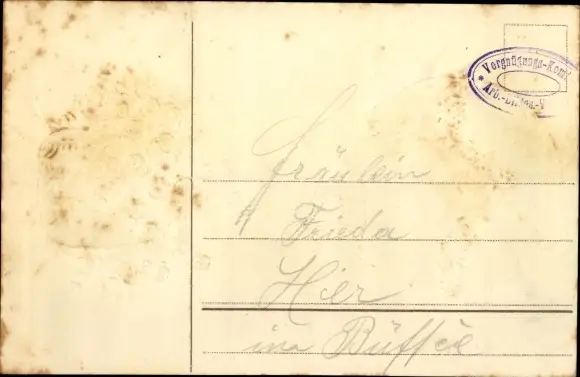 Vergnügungs-Kom
* Arb.-
Fräulein
Frieda
Hier
im Büffée